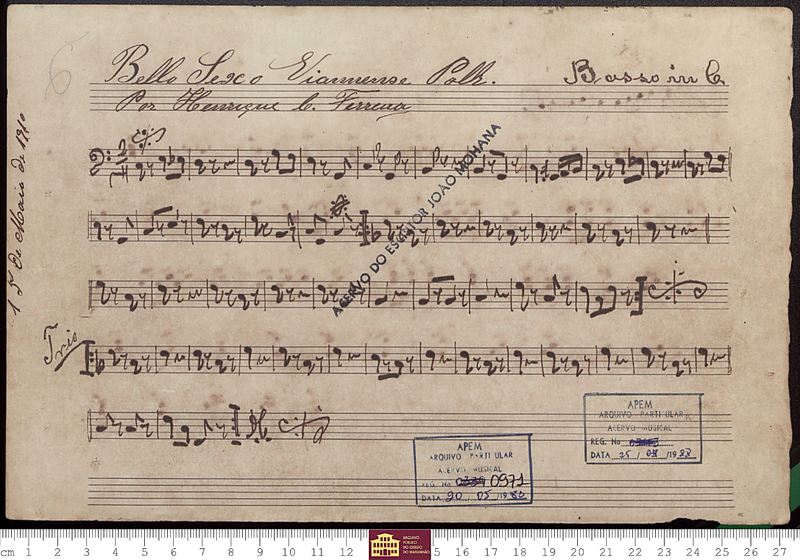 Bello Sexo Viannense Polk.
Basso in C
Por Henrique C. Ferreira
15 de Maio de 1910
2
4
ACERVO DO ESCRITOR JOÃO MOHANA
Trio
D.C.
APEM
ARQUIVO PARTICULAR
ACERVO MUSICAL
REG. No 0971
DATA 20 / 05 /19 88
APEM
ARQUIVO PARTICULAR
ACERVO MUSICAL
REG. No
DATA 25 / /19 88
cm 1 2 3 4 5 6 7 8 9 10 11 12 15 16 17 18 19 20 21 22 23 24 25 26 27
ARQUIVO
PÚBLICO
DO ESTADO
DO MARANHÃO